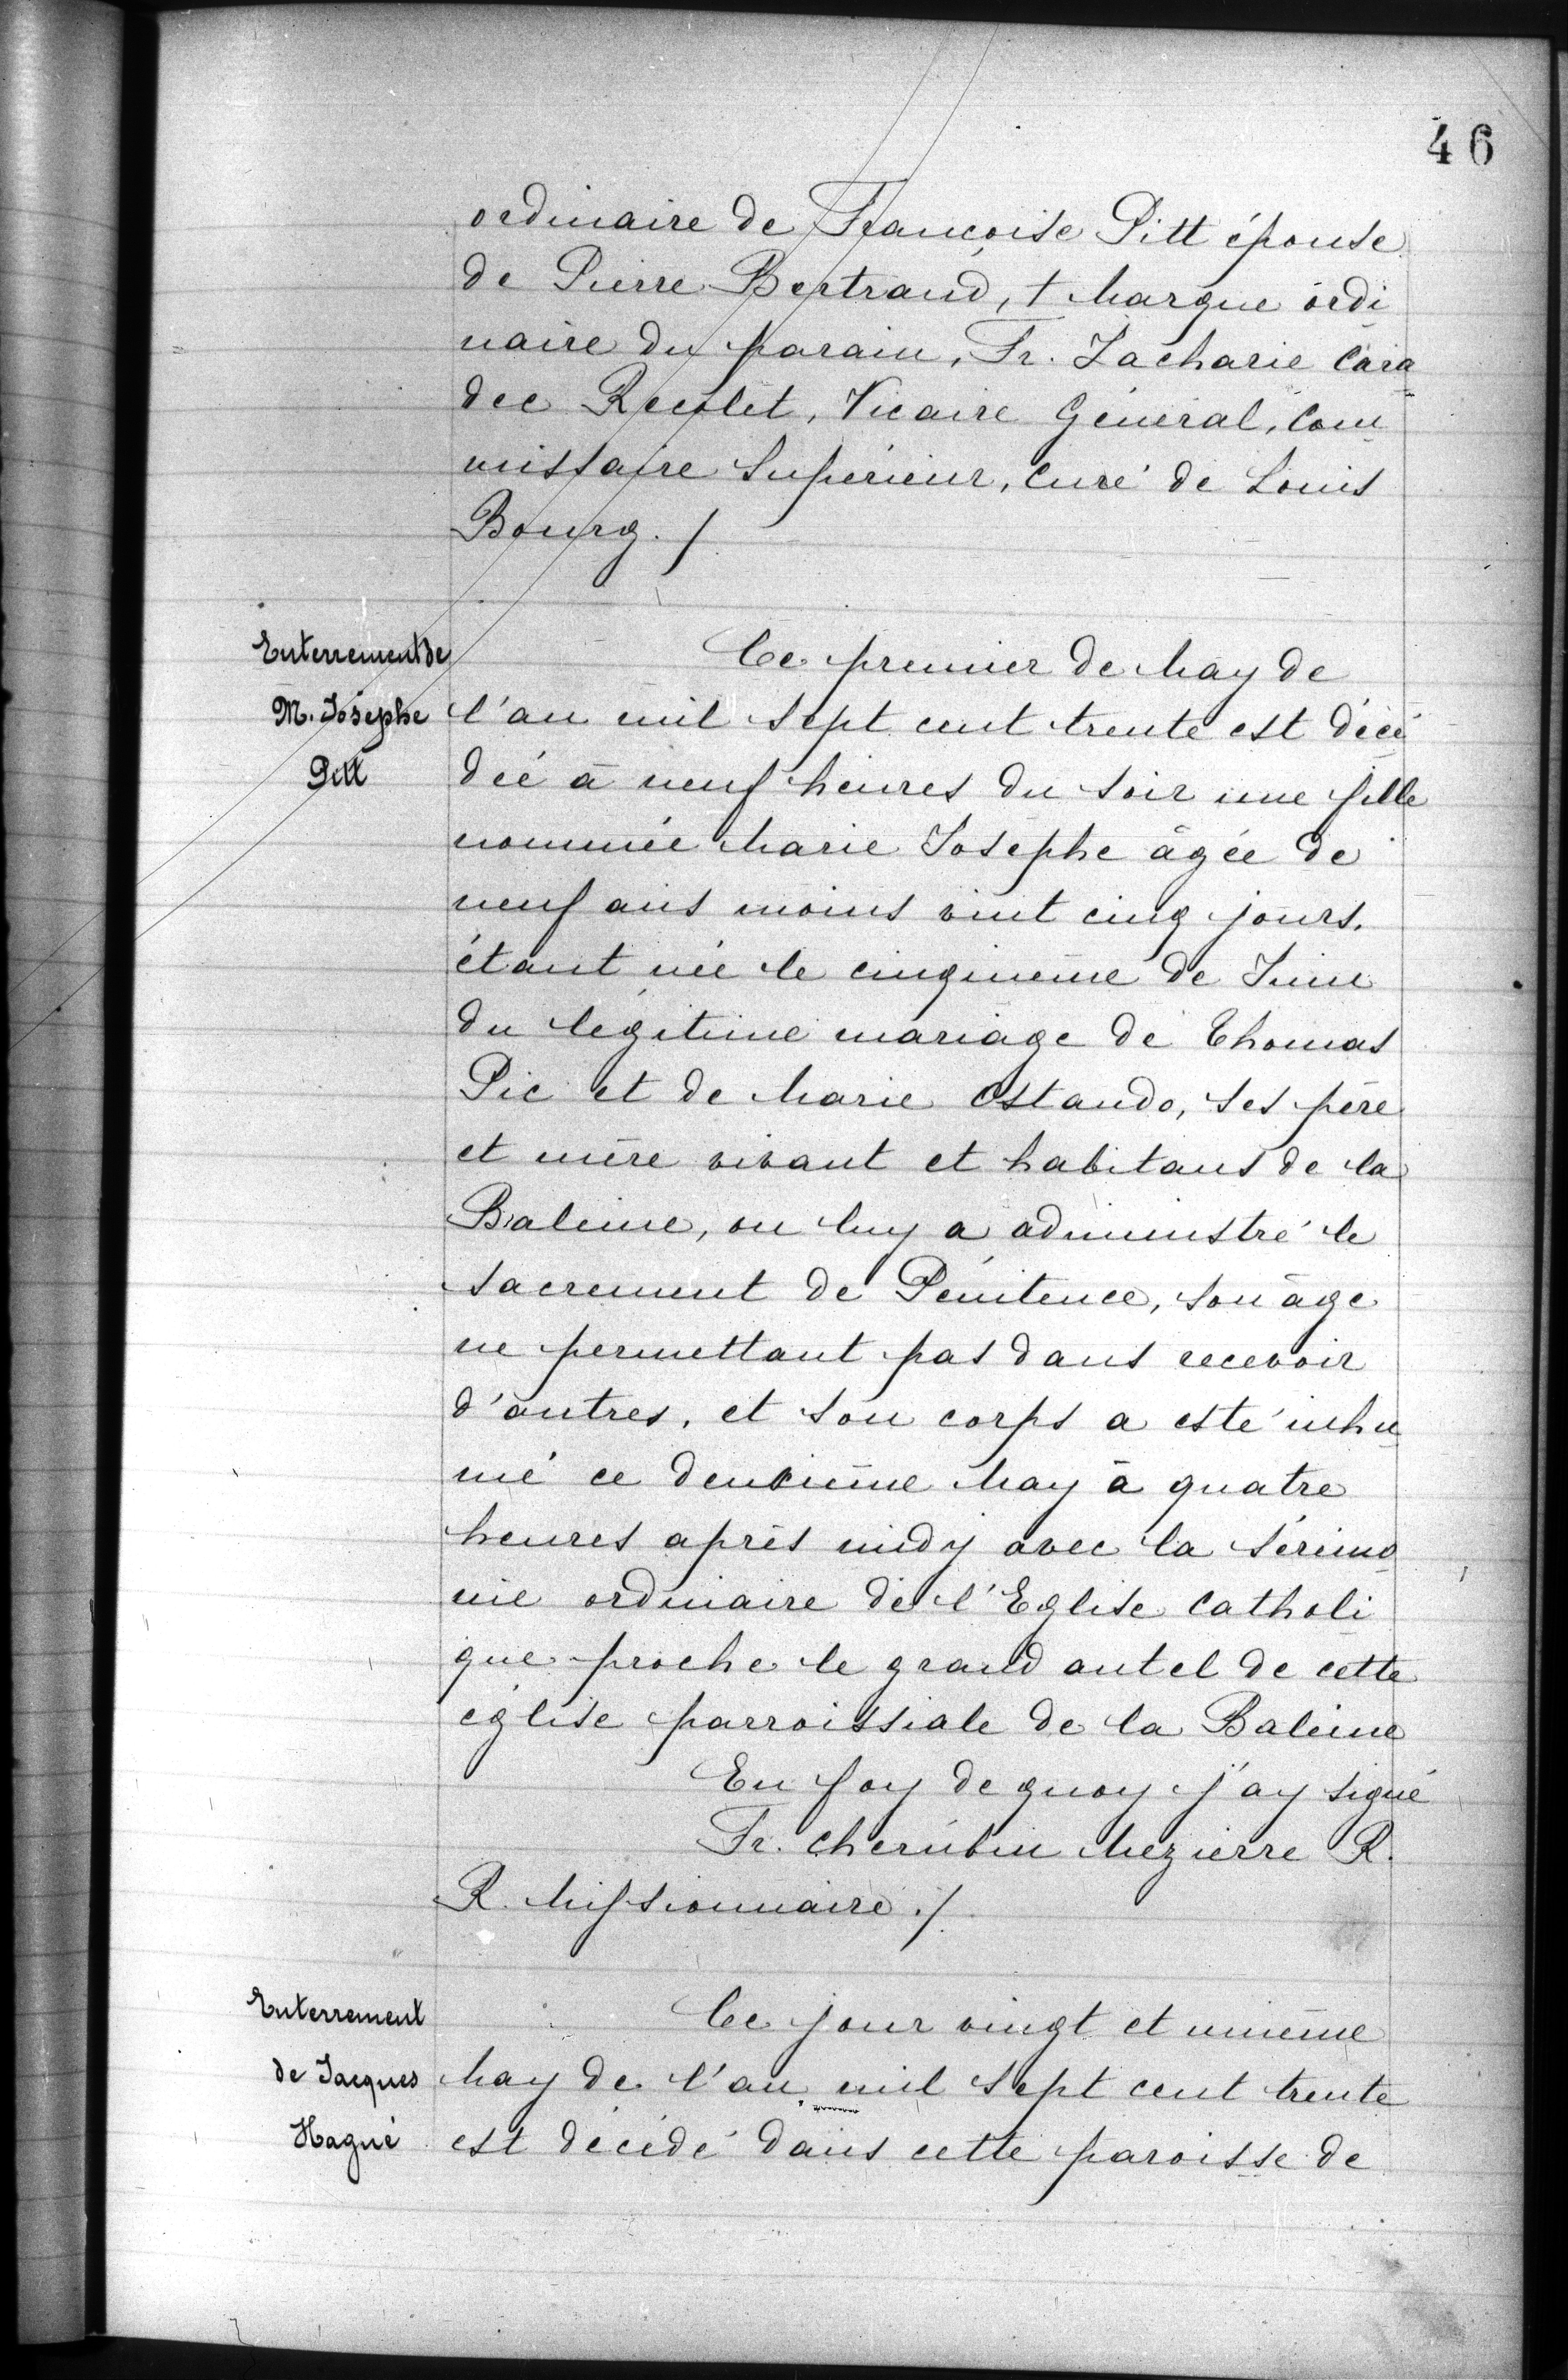 46
ordinaire de Françoise Pitt épouse
de Pierre Bertrand, † Marque ordi
naire du parain, Fr. Zacharie Cara
dec Recolet, Vicaire Général, Com
missaire Supérieur, Curé de Louis
Bourg. /
Enterrement de
M. Josephe
Pitt
Ce premier de May de
l'an mil sept cent trente est décé
dée à neuf heures du soir une fille
nommée Marie Josephe âgée de
neuf ans moins vint cinq jours,
étant née le cinqiueme de Juin
du légitime mariage de Thomas
Pic et de Marie Ostando, ses père
et mère vivant et habitans de la
Baleine, on luy a administré le
sacrement de Pénitence, son âge
ne permettant pas dans recevoir
d'autres, et son corps a esté inhu
mé ce deuxième May à quatre
heures après midy avec la sérémo
nie ordinaire de l'Eglise Catholi
que proche le grand autel de cette
église parroissiale de la Baleine
En foy de quoy j'ay signé
Fr. Cherubin Mezierre R.
R. Missionnaire ./
Enterrement
de Jacques
Hagué
Ce jour vingt et unième
May de l'an mil sept cent trente
est décédé dans cette paroisse de